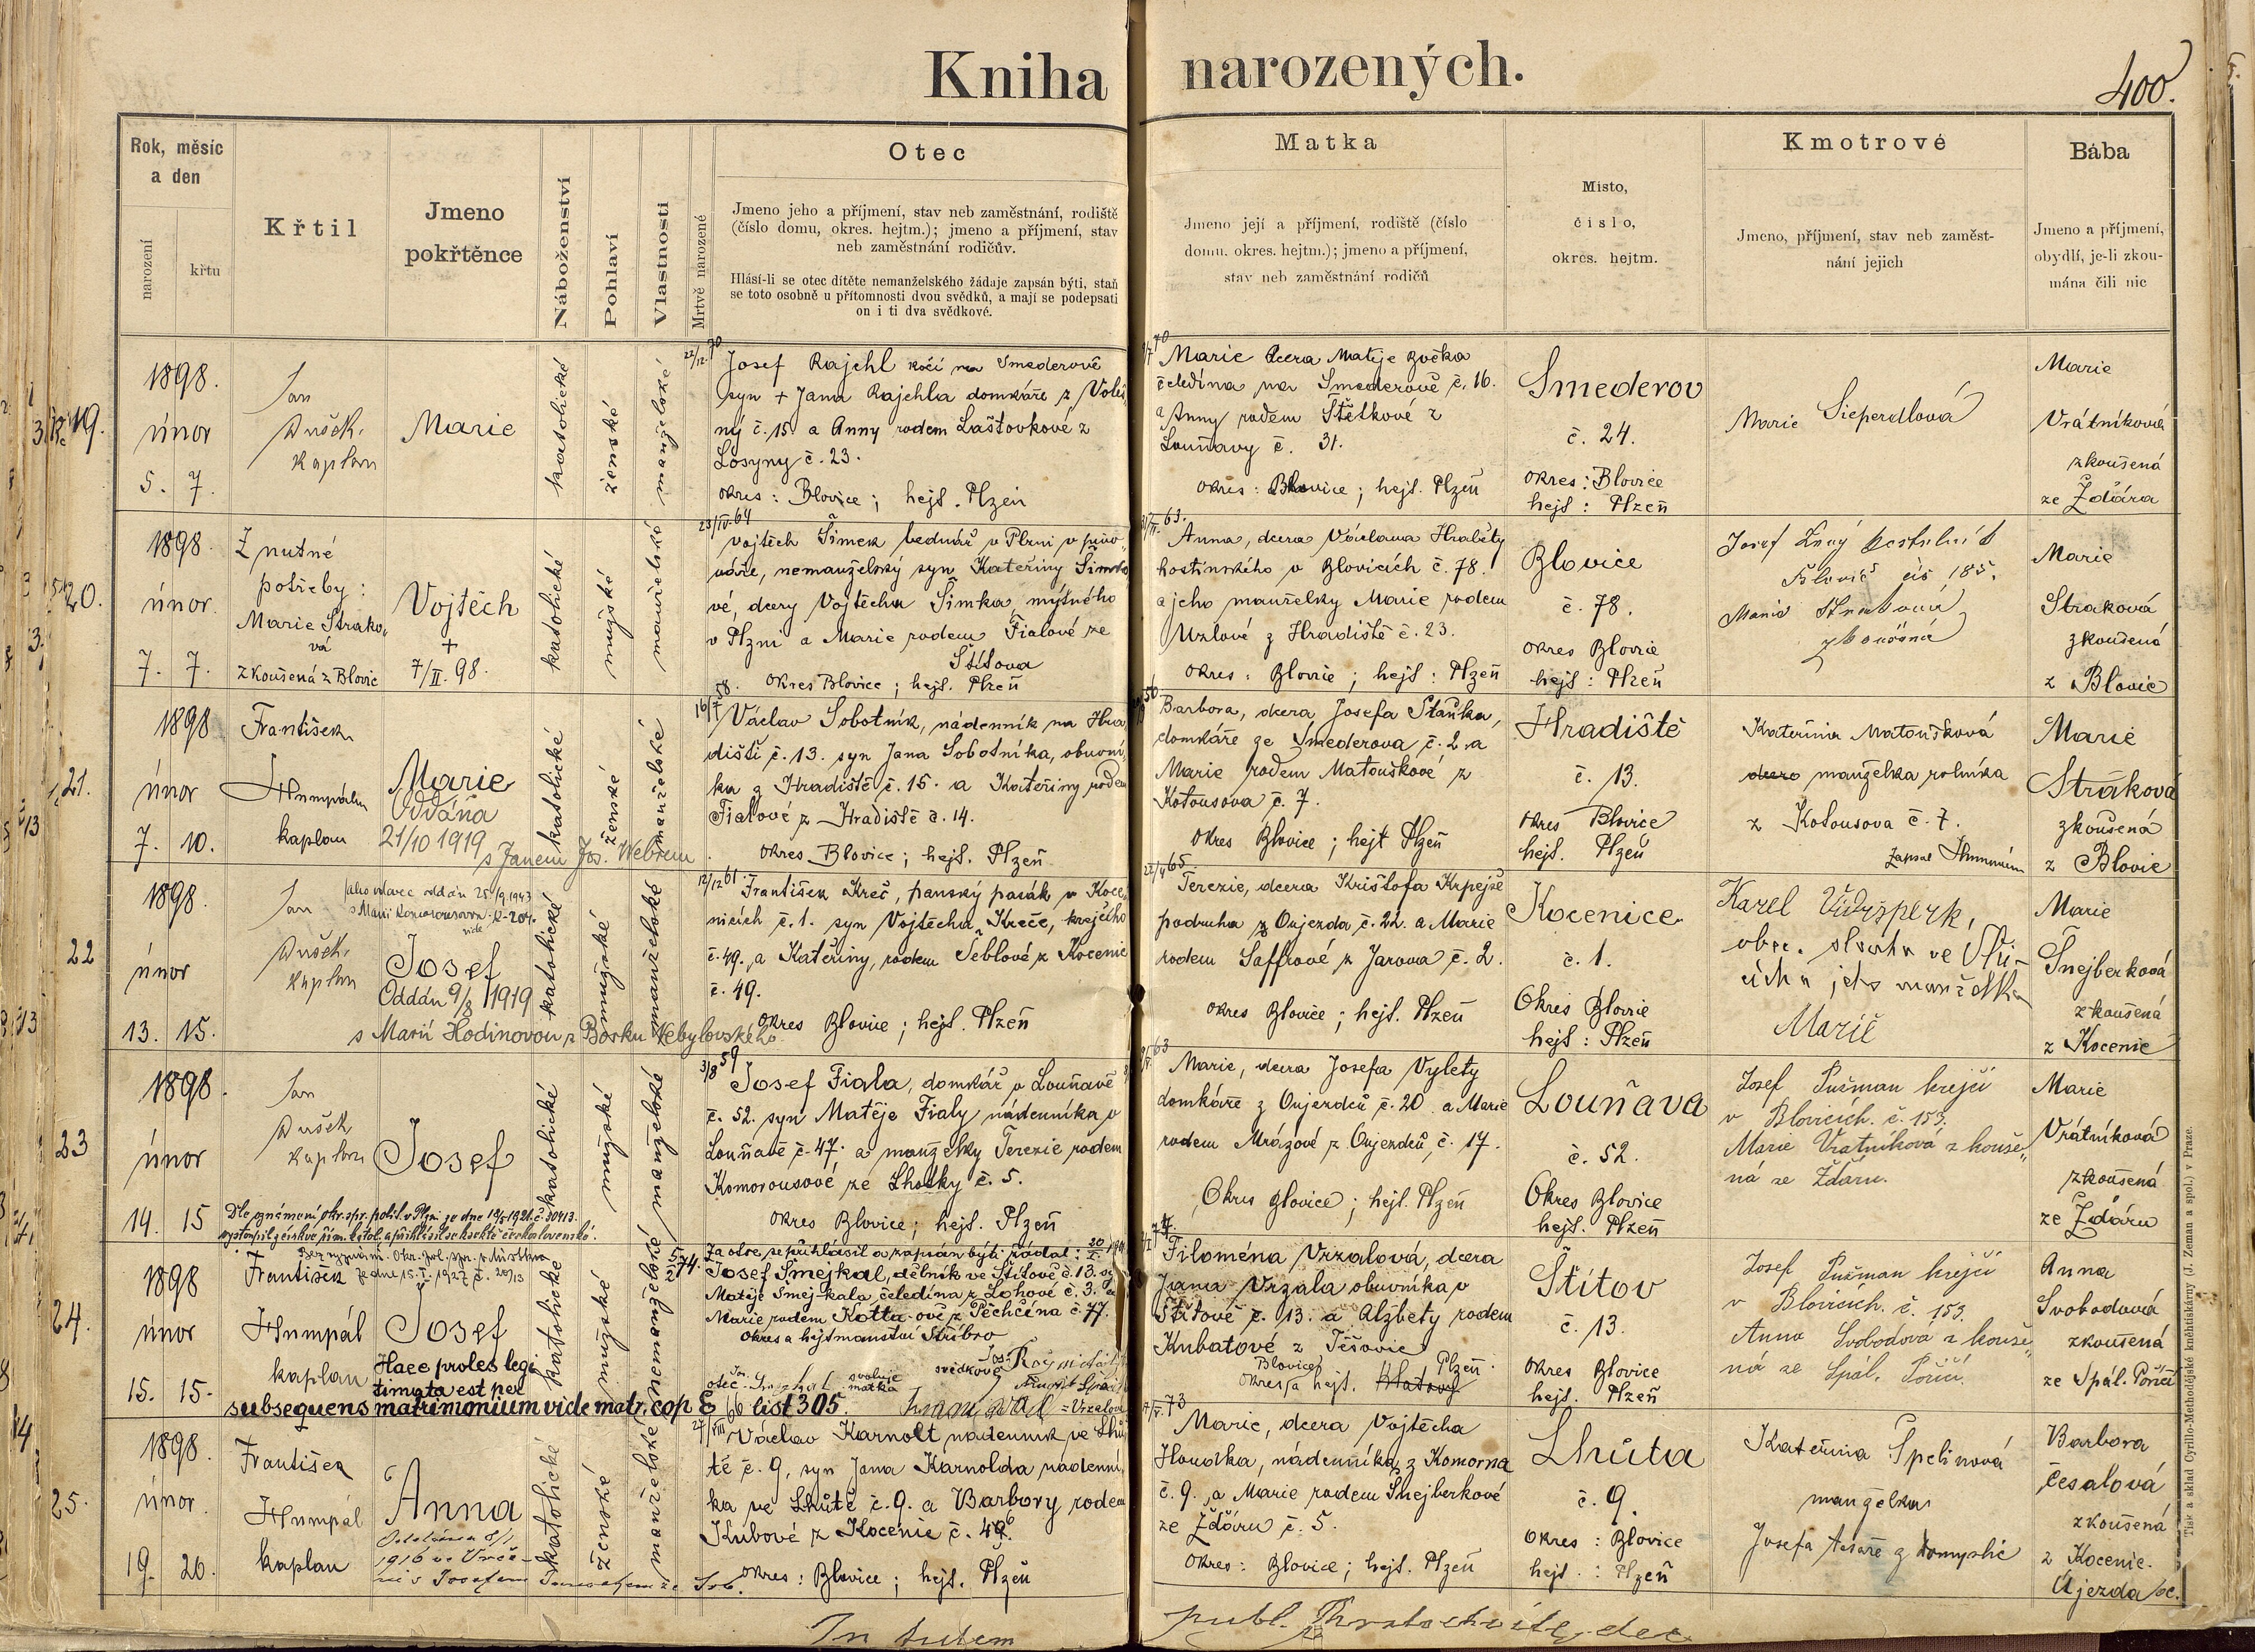 Kniha narozených.
400.
Rok, měsíc
a den
narození
křtu
Křtil
Jmeno
pokřtěnce
Náboženství
Pohlaví
Vlastnosti
Mrtvě narozené
Otec
Jmeno jeho a příjmení, stav neb zaměstnání, rodiště
(číslo domu, okres. hejtm.); jmeno a příjmení, stav
neb zaměstnání rodičův.
Hlásí-li se otec dítěte nemanželského žádaje zapsán býti, staň
se toto osobně u přítomnosti dvou svědků, a mají se podepsati
on i ti dva svědkové.
Matka
Jmeno její a příjmení, rodiště (číslo
domu, okres. hejtm.); jmeno a příjmení,
stav neb zaměstnání rodičů
Místo,
číslo,
okres. hejtm.
Kmotrové
Jmeno, příjmení, stav neb zaměst-
nání jejich
Bába
Jmeno a příjmení,
obydlí, je-li zkou-
mána čili nic
19.
1898.
únor
5. 7.
Jan
Dušek
kaplan
Marie
katolické
ženské
manželské
22/12 70
Josef Rajchl kočí na Smederově
syn + Jana Rajchla domkáře z Voleš
ný č. 15 a Anny rodem Laštovkové z
Losyny č. 23.
okres: Blovice; hejt. Plzeň
Marie dcera Matěje Bočka
čeledína na Smederově č. 16.
a Anny rodem Štětkové z
Louňavy č. 31.
okres: Blovice; hejt. Plzeň
Smederov
č. 24.
okres: Blovice
hejt: Plzeň
Marie Sieperdlová
Marie
Vrátníková
zkoušená
ze Ždára
20.
1898.
únor.
7. 7.
Z nutné
potřeby:
Marie Strako„
vá
zkoušená z Blovic
Vojtěch
+
7/II. 98.
katolické
mužské
manželské
23/IV. 64
Vojtěch Šimek bednář v Plzni v pivo„
váře, nemanželský syn Kateřiny Šimko
vé, dcery Vojtěcha Šimka, mýtného
v Plzni a Marie rodem Fialové ze
Štítova
okres Blovice; hejt. Plzeň
63.
Anna, dcera Václava Hraběty
hostinského v Blovicích č. 78.
a jeho manželky Marie rodem
Uzlové z Hradiště č. 23.
okres: Blovice; hejt: Plzeň
Blovice
č. 78.
okres Blovice
hejt: Plzeň
Josef kostelník
Blovic čís 185.
Marie Straková
zkoušená
Marie
Straková
zkoušená
z Blovic
21.
1898
únor
7. 10.
František
Humpál
kaplan
Marie
Oddána
21/10 1919 s Janem Jos. Webrem
katolické
ženské
manželské
16/7 58.
Václav Sobotník, nádenník na Hra
dišti č. 13. syn Jana Sobotníka, obuvní„
ka z Hradiště č. 15. a Kateřiny rodem
Fialové z Hradiště č. 14.
okres Blovice; hejt. Plzeň
56
Barbora, dcera Josefa Staňka,
domkáře ze Smederova č. 2. a
Marie rodem Matouškové z
Kotousova č. 7.
okres Blovice; hejt Plzeň
Hradiště
č. 13.
okres Blovice
hejt. Plzeň
Kateřina Matoušková
dcera manželka rolníka
z Kotousova č. 7.
Zapsal Humpál
Marie
Straková
zkoušená
z Blovic
22
1898.
únor
13. 15.
Jan
Dušek
kaplan
jako vdovec oddán 25./9.1943
s Marií Komorousovou
vide
Josef
Oddán 9/8 1919
s Marií Hodinovou z Borku Nebylovského
katolické
mužské
manželské
12/12 61.
František Kreč, panský pasák v Koce„
nicích č. 1. syn Vojtěcha Kreče, krejčího
č. 49., a Kateřiny, rodem Šeblové z Kocenic
č. 49.
okres Blovice; hejt. Plzeň
22/4 65
Terezie, dcera Krištofa Krpejše
podruha z Oujezda č. 22. a Marie
rodem Saffrové z Jarova č. 2.
okres Blovice; hejt. Plzeň
Kocenice
č. 1.
Okres Blovice
hejt: Plzeň
Karel
obec. sluha ve Vlči-
cích a jeho manželka
Marie
Marie
Šnejberková
zkoušená
z Kocenic
23
1898.
únor
14. 15
Jan
Dušek
kaplan
Josef
Dle oznámení okr. spr. polit. v Plzni ze dne 18/5 1921. č. 30413.
vystoupil z církve řím. katol. a přihlásil se k sektě československé.
katolické
mužské
manželské
3/8 59
Josef Fiala, domkář v Louňavě
č. 52. syn Matěje Fialy nádenníka v
Louňavě č. 47. a manželky Terezie rodem
Komorousové ze Lhotky č. 5.
okres Blovice; hejt. Plzeň
63
Marie, dcera Josefa Vylety
domkáře z Oujezdců č. 20 a Marie
rodem Mrázové z Oujezdců, č. 17.
Okres Blovice; hejt. Plzeň
Louňava
č. 52.
Okres Blovice
hejt. Plzeň
Josef Pušman krejčí
v Blovicích. č. 153.
Marie Vratníková zkouše„
ná ze Žďáru.
Marie
Vrátníková
zkoušená
ze Ždáru
24.
1898
únor
15. 15.
Bez vyznání. Okr. pol. spr.
ze dne 15. 1927 č.
František
Humpál
kaplan
Josef
Haec proles legi
timata est per
subsequens matrimonium vide matr. cop E list 305.
katolické
mužské
nemanželské
74.
Za otce se přihlásil a zapsán býti žádal:
Josef Smejkal, dělník ve Štítově č. 13. syn
Matěje Smejkala čeledína z Lohové č. 3. a
Marie rodem Kottaové z Těchčína č. 77.
okres a hejtmanství Stříbro
otec svoluje
matka
svědkové
= Vrzalová
Filoména Vrzalová, dcera
Jana Vrzala obuvníka v
Štítově č. 13. a Alžběty rodem
Kubatové z Těšovic
Blovice Plzeň.
okres a hejt. Klatovy
Štítov
č. 13.
okres Blovice
hejt. Plzeň
Josef Pušman krejčí
v Blovicích. č. 153.
Anna Svobodová zkouše„
ná ze Spál. Poříčí.
Anna
Svobodová
zkoušená
ze Spál. Poříčí
25.
1898.
únor.
19. 20.
František
Humpál
kaplan
Anna
Oddána 8/1
1916 ve Vrče-
ni s Josefem
katolické
ženské
manželské
27/VIII 66
Václav Karnolt nádenník ve Lhů
tě č. 9, syn Jana Karnolda nádenní„
ka ve Lhůtě č. 9. a Barbory rodem
Kubové z Kocenic č. 49.
okres: Blovice; hejt. Plzeň
73
Marie, dcera Vojtěcha
Houdka, nádenníka z Komorna
č. 9., a Marie rodem Šnejberkové
ze Ždáru č. 5.
okres: Blovice; hejt. Plzeň
Lhůta
č. 9.
okres: Blovice
hejt.: Plzeň
Kateřina Špelinová
manželka
Josefa tesaře z
Barbora
Česalová
zkoušená
z Kocenic.
Újezda
In fidem
publ.
Tisk a sklad Cyrillo-Methodějské knihtiskárny (J. Zeman a spol.) v Praze.